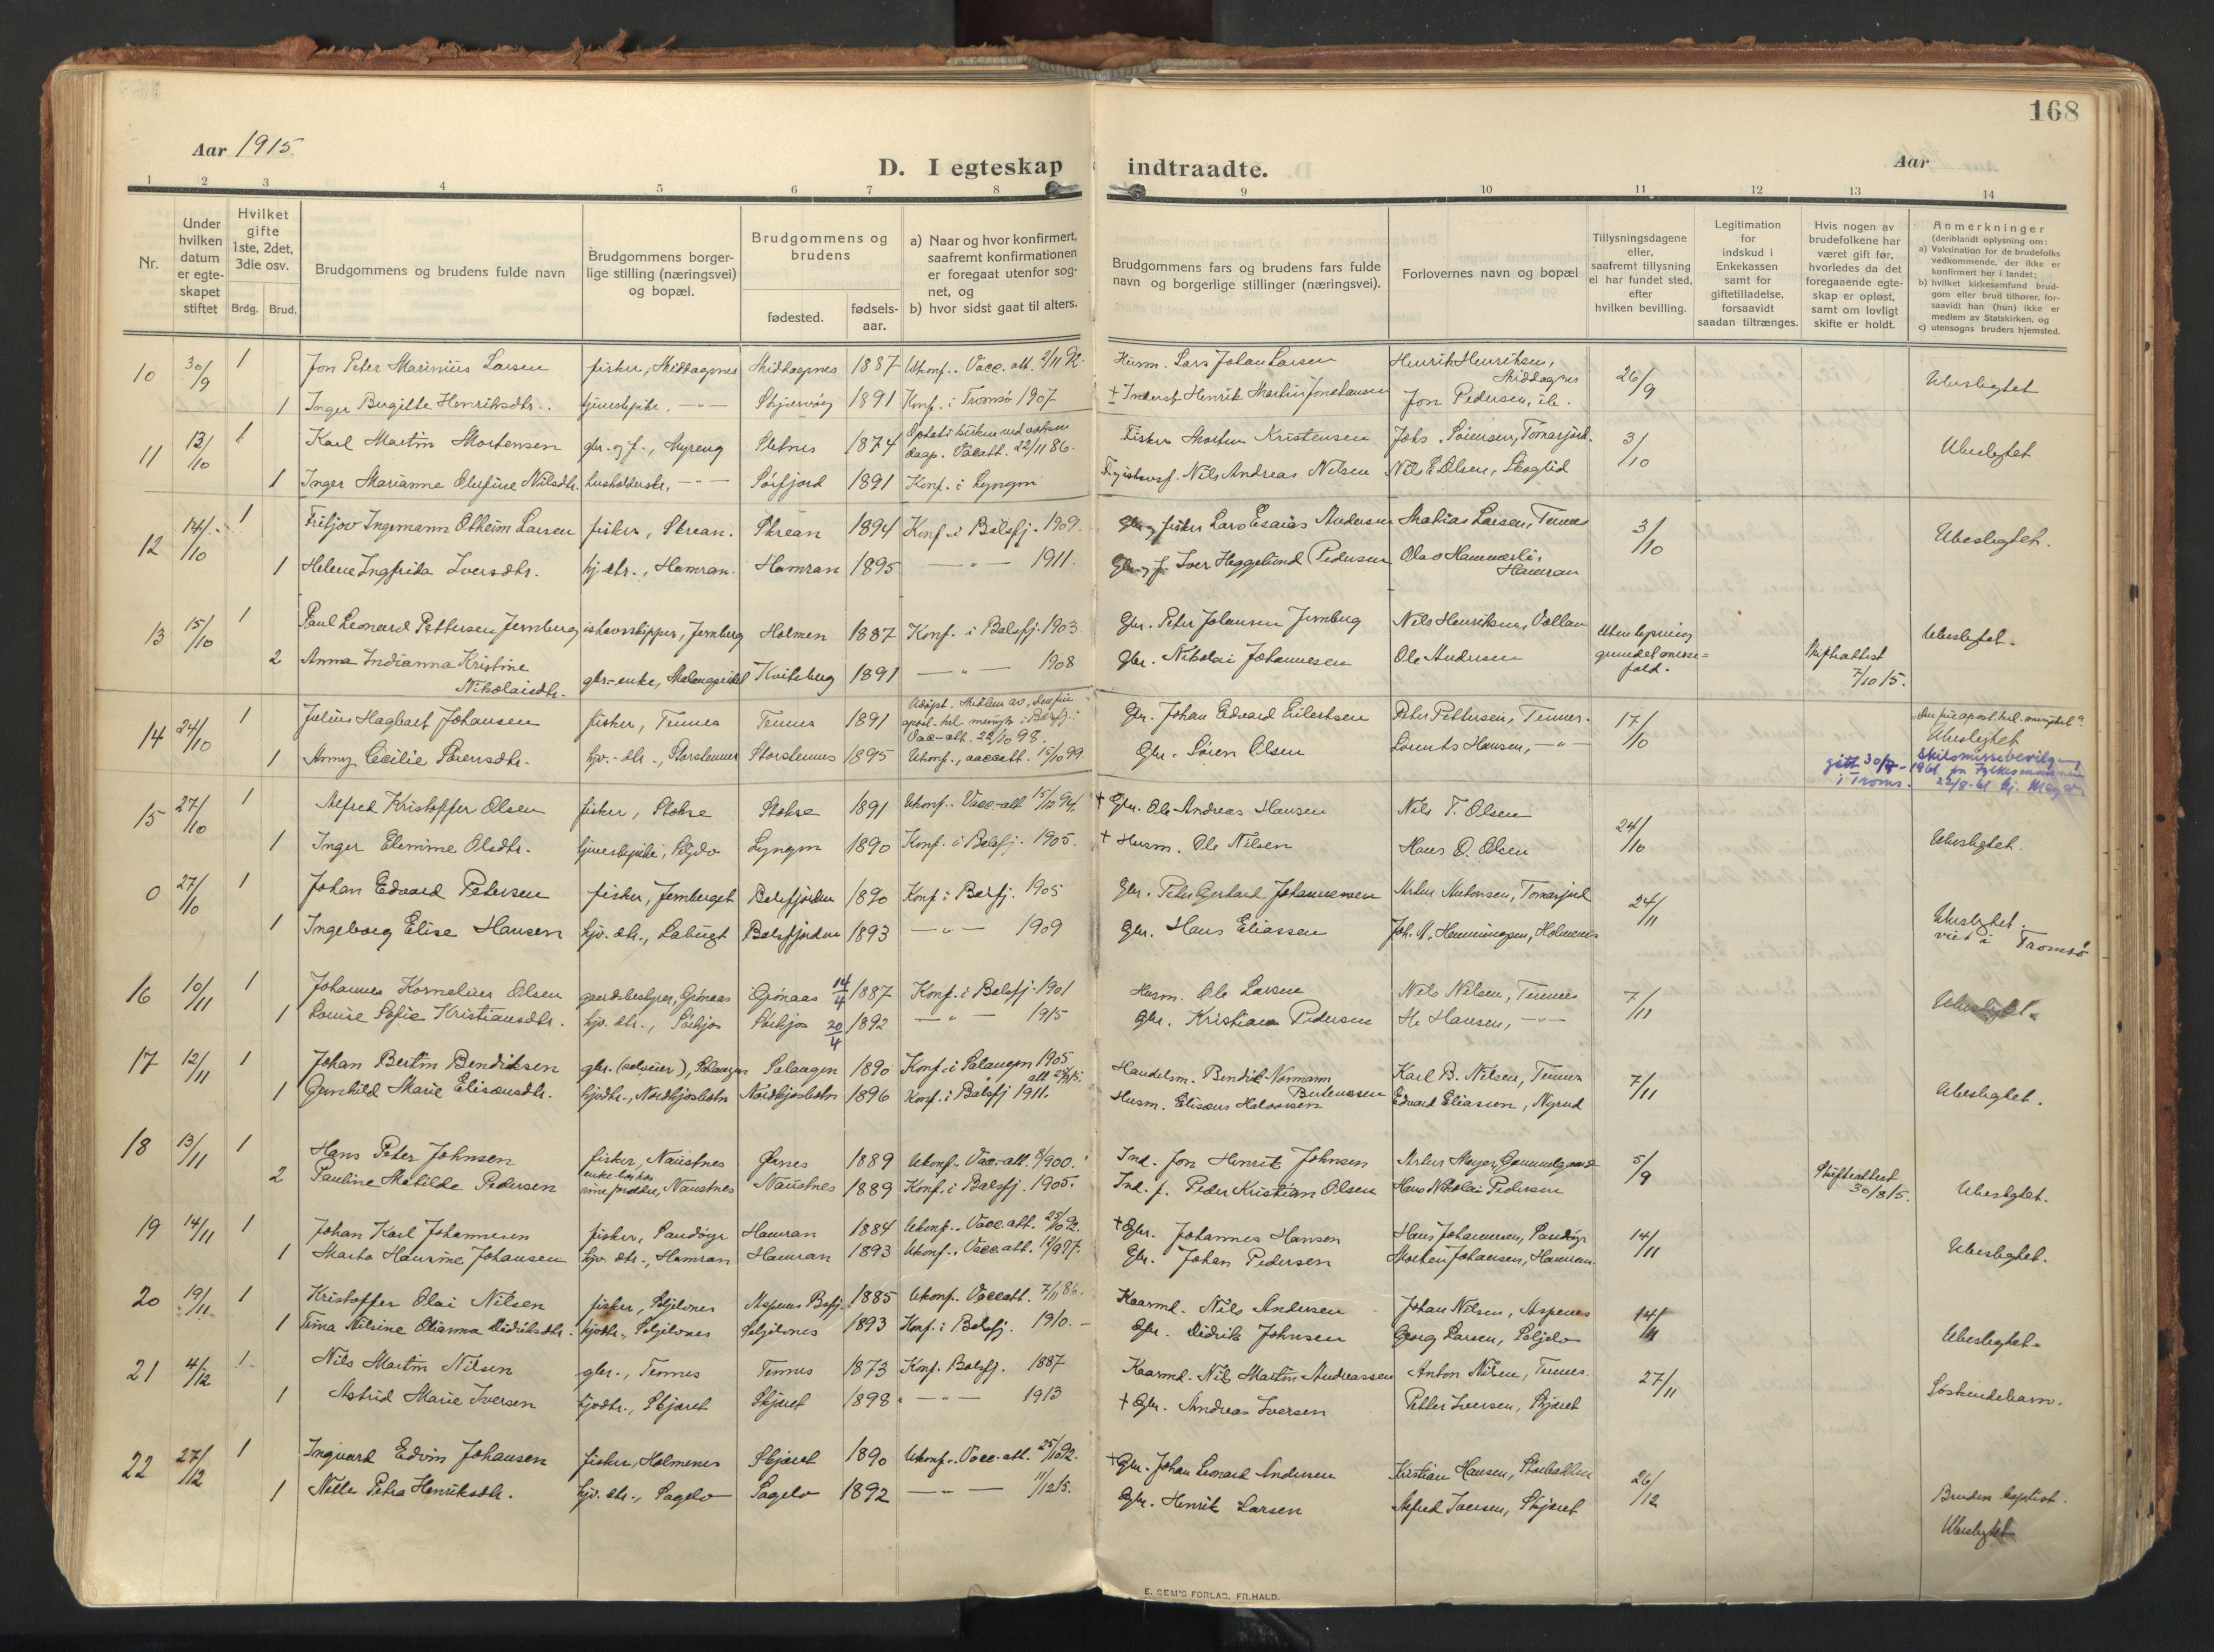 168
Aar 1915.
D. I egteskap indtraadte.
Aar
1 2 3 4 5 6 7 8 9 10 11 12 13 14
Nr.
Under hvilken datum er egte-skapet stiftet
Hvilket gifte 1ste, 2det, 3die osv.
Brdg. Brud.
Brudgommens og brudens fulde navn
Brudgommens borger-lige stilling (næringsvei) og bopæl.
Brudgommens og brudens
fødested.
fødsels-aar.
a) Naar og hvor konfirmert, saafremt konfirmationen er foregaat utenfor sog-net, og
b) hvor sidst gaat til alters.
Brudgommens fars og brudens fars fulde navn og borgerlige stillinger (næringsvei).
Forlovernes navn og bopæl
Tillysningsdagene eller, saafremt tillysning ei har fundet sted, efter hvilken bevilling.
Legitimation for indskud i Enkekassen samt for giftetilladelse, forsaavidt saadan tiltrænges.
Hvis nogen av brudefolkene har været gift før, hvorledes da det foregaaende egte-skap er opløst, samt om lovligt skifte er holdt.
Anmerkninger
(deriblandt oplysning om:
a) Vaksination for de brudefolks vedkommende, der ikke er konfirmert her i landet;
b) hvilket kirkesamfund brud-gom eller brud tilhører, for-saavidt han (hun) ikke er medlem av Statskirken, og
c) utensogns bruders hjemsted.
10 30/9 1 Jon Peter Marinius Larsen fisker, Middagsnes Middagsnes 1887 Ukonf. Vacc. att. 2/11 92. Husm. Lars Johan Larsen Henrik Henriksen, Middagsnes 26/9 Ubeslegtet
1 Inger Bergitte Henriksdtr. tjenestepike, -"- Skjærvøy 1891 Konf. i Tromsø 1907 + Inderst Henrik Martin Jonathansen Jon Pedersen, ib.
11 13/10 1 Karl Martin Mortensen gbr. og f., Myreng Sletnes 1874 daap. Vacatt. 22/11 86. Fisker Morten Kristensen Johs. Sørensen, Tomasjord. 3/10 Ubeslegtet
1 Inger Marianne Olufine Nilsdtr. husholderske, -"- Sørfjord 1891 Konf. i Lyngen Nils Andreas Nilsen Nils E. Olsen, Skoglid
12 14/10 1 Fritjov Ingemann Otheim Larsen fisker, Skrean. Skrean 1894 Konf. i Balsfj. 1909. Gbr. og fisker Lars Esaias Andersen Mathias Larsen, Tennes 3/10 Ubeslegtet.
1 Helene Ingfrida Iversdtr. hj. dtr., Hamran. Hamran 1895 -"- 1911. Gbr. og f. Iver Heggelund Pedersen Olav Hammerli, Hamran
13 15/10 1 Paul Leonard Pettersen Jernberg ishavsskipper, Jernberg Holmen 1887 Konf. i Balsfj. 1903. Gbr. Peter Johansen Jernberg Nils Henriksen, Vollan Uten lysning grundet omsæ=fald. Ubeslegtet.
2 Anna Indianna Kristine Nikolaisdtr. gbr.-enke, Malangseidet Kvitberg 1891 -"- 1908 Gbr. Nikolai Johannesen Ole Andersen Skifteattest 7/10 15.
14 24/10 1 Julius Hagbart Johansen fisker, Tennes Tennes 1891 Udøpt. Medlem av den frie apost. kel. menigh. i Balsfj. Vac-att. 22/10 98. Gbr. Johan Edvard Eilertsen Peter Pettersen, Tennes. 17/10 Den frie apost. kel. menighet Ubeslegtet
1 Anny Cecilie Sørensdtr. hjv.-dtr., Storstennes Storstennes 1895 Ukonf., vaccatt. 15/10 99. Gbr. Søren Olsen Lorents Hansen, -"-
gitt 30/8-1961 i Troms. Skilsmissebevilgning fra Fylkesmannen 22/8-61
15 27/10 1 Alfred Kristoffer Olsen fisker, Stokse Stokse 1891 Ukonf. Vacc-att 15/10 94. + Gbr. Ole Andreas Hansen Nils T. Olsen 24/10 Ubeslegtet.
1 Inger Elemine Olsdtr. tjenestepike, Seljelv Lyngen 1890 Konf. i Balsfj. 1905. + Husm. Ole Nilsen Hans O. Olsen
0 27/10 1 Johan Edvard Petersen fisker, Jernberget Balsfjorden 1890 Konf. i Balsfj. 1905 Gbr. Peter Gerhard Johannessen Artur Antonsen, Tomasjord 24/11 Ubeslegtet. viet i Tromsø
1 Ingeborg Elise Hansen hjv. dtr., Labugt Balsfjorden 1893 -"- 1909 Gbr. Hans Eliassen Joh. M. Henningsen, Holmenes
16 10/11 1 Johannes Kornelius Olsen gaardsbestyrer, Grønaas Grønaas 14/4 1887 Konf. i Balsfj. 1901 Husm. Ole Larsen Nils Nilsen, Tennes 7/11 Ubeslegtet.
1 Louise Sofie Kristiansdtr. hjv. dtr., Sørkjos Sørkjos 20/4 1892 -"- 1915 Gbr. Kristian Pedersen H. Hansen, -"-
17 12/11 1 Johan Bertin Bendiksen gbr. (selveier), Salangen Salangen 1890 Konf. i Salangen 1905 Handelsm. Bendik Normann Berteussen Karl B. Nilsen, Tennes 7/11 Ubeslegtet.
1 Gunhild Marie Elisæusdtr. hjvdtr., Nordkjosbotn Nordkjosbotn 1896 Konf. i Balsfj 1911. Husm. Elisæus Halvorsen Edvard Eliassen, Nyrud
18 13/11 1 Hans Peter Johnsen fisker, Naustnes Ørnes 1889 Ukonf. Vacc-att. 8/900. Ind. Jon Henrik Johnsen Artur Meyer, Gammelgaard 5/9 Ubeslegtet.
2 Pauline Matilde Pedersen enke hos sine forældre, Naustnes Naustnes 1889 Konf. i Balsfj. 1905. Ind. f. Peder Kristian Olsen Hans Nikolai Pedersen Skifteattest 30/8 15.
19 14/11 1 Johan Karl Johannesen fisker, Sandøyr Hamran 1884 Ukonf. Vacc. att. 25/10 92. + Gbr. Johannes Hansen Hans Johannesen, Sandøyr 14/11 Ubeslegtet.
1 Marta Hansine Johansen hjv. dtr., Hamran Hamran 1893 Ukonf. Vacc. att. Gbr. Johan Pedersen Morten Johansen, Hamran.
20 19/11 1 Kristoffer Olai Nilsen fisker, Seljelvnes Aspenes Balsfj. 1885 Ukonf. Vaccatt. 7/11 86. Kaarmd. Nils Andersen Johan Nilsen, Aspenes 14/11 Ubeslegtet.
1 Trina Nilsine Olianna Didriksdtr. hjvdtr., Seljelvnes Seljelvnes 1893 Konf. i Balsfj. 1910. Gbr. Didrik Johnsen Georg Larsen, Seljelv
21 4/12 1 Nils Martin Nilsen gbr., Tennes Tennes 1873 Konf. Balsfj. 1887 Kaarmd. Nils Martin Andreassen Anton Nilsen, Tennes. 27/11 Søskendebarn.
1 Astrid Marie Iversen hjvdtr., Skjæret Skjæret 1898 -"- 1913 + Gbr. Andreas Iversen Petter Iversen, Skjæret
22 27/12 1 Ingvard Edvin Johansen fisker, Holmenes Skjæret 1890 Ukonf. Vacc-att. 25/10 92. + Gbr. Johan Leonard Andersen Kristian Hansen, Storbakken 26/12 Bruden baptist.
1 Nelle Petra Henriksdtr. hjv. dtr., Sagelv Sagelv 1892 -"- 11/12 15. Gbr. Henrik Larsen Alfred Iversen, Skjæret Ubeslegtet
E. SEM'S FORLAG, FR.HALD.